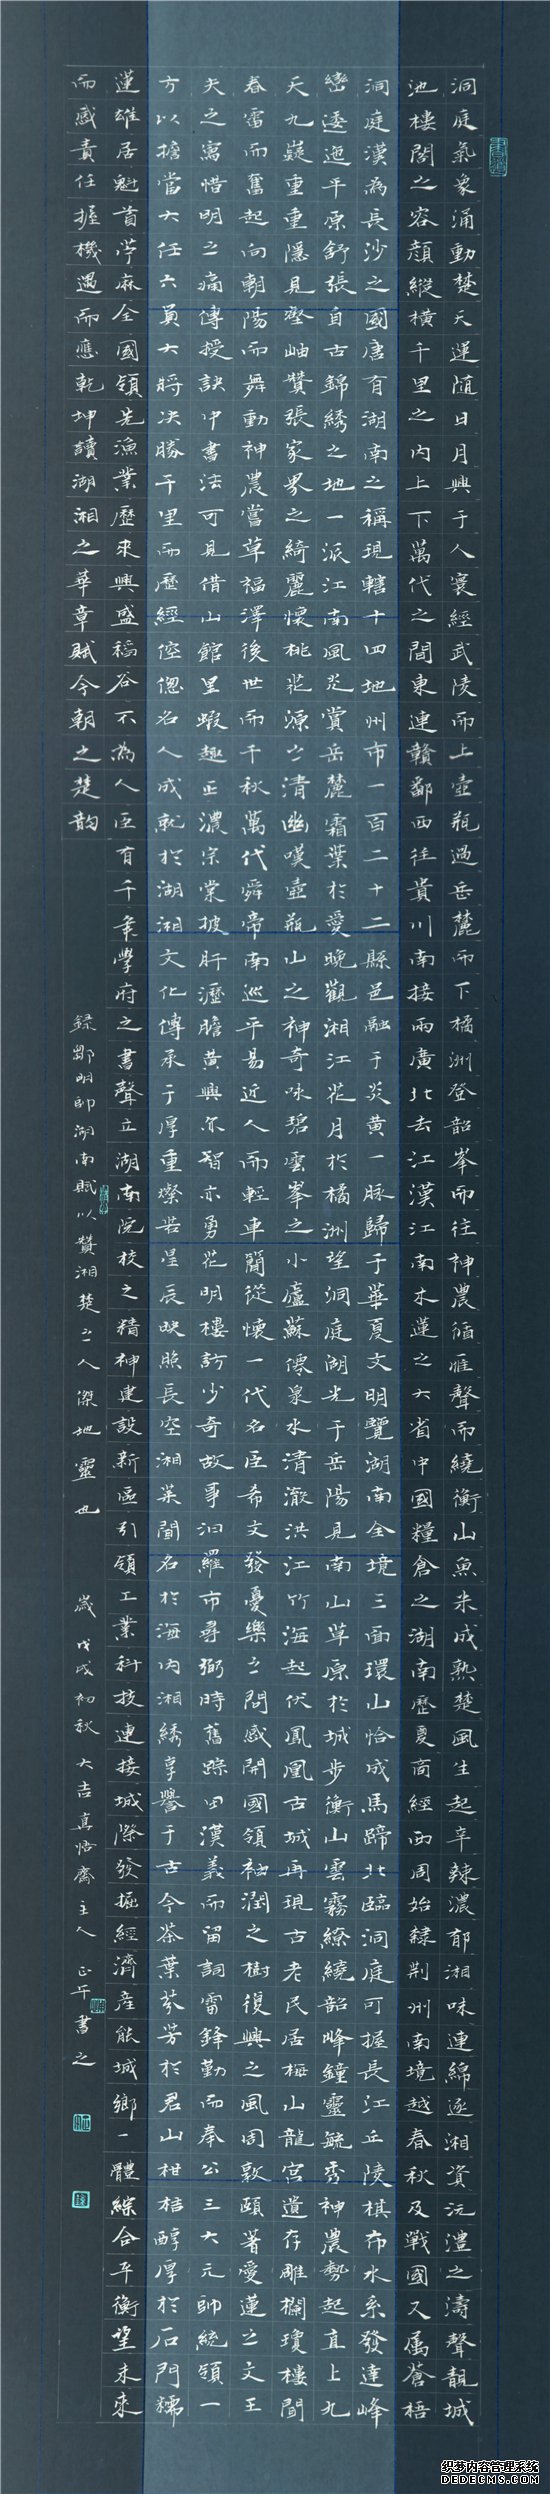 洞庭氣象涌動楚天運隨日月興于人寰經武陵而上壺瓶過岳麓而下橘洲登韶峯而往神農循雁聲而繞衡山魚米成熟楚風生起辛辣濃郁湘味連綿逐湘資沅澧之濤聲靚城
池樓閣之容顔縱橫千里之內上下萬代之間東連贛鄱西往貴川南接兩廣北去江漢江南木蓮之大省中國糧倉之湖南歷夏商經西周始隸荆州南境越春秋及戰國又属蒼梧
洞庭漢為長沙之國唐有湖南之稱現轄十四地州市一百二十二縣邑融于炎黄一脉歸于華夏文明覽湖南全境三面環山恰成馬蹄北臨洞庭可握長江丘陵棋布水系發達峰
巒逶迤平原舒張自古錦綉之地一派江南風光賞岳麓霜葉於愛晚觀湘江花月於橘洲望洞庭湖光于岳陽見南山草原於城步衡山雲霧繚繞韶峰鐘靈毓秀神農勢起直上九
天九嶷重重隱見壑岫贊張家界之綺麗懷桃花源之清幽嘆壺瓶山之神奇咏碧雲峯之小廬蘇僊泉水清澈洪江竹海起伏鳳凰古城再現古老民居梅山龍宮遺存雕欄瓊樓聞
春雷而奮起向朝陽而舞動神農嘗草福澤後世而千秋萬代舜帝南巡平易近人而輕車簡從懷一代名臣希文發憂樂之問感開國領袖潤之樹復興之風周敦頤著愛蓮之文王
夫之寓惜明之痛傳授訣中書法可見借山館里蝦趣正濃宗棠披肝瀝膽黄興尔智亦勇花明樓訪少奇故事汨羅市尋弼時舊踪田漢義而留詞雷鋒勤而奉公三大元帥統領一
方以擔當大任六員大將决勝千里而歷經倥傯名人成就於湖湘文化傳承于厚重燦若星辰映照長空湘菜聞名於海內湘綉享譽于古今茶葉芬芳於君山柑桔醇厚於石門糯
蓮雄居魁首苧麻全國領先漁業歷來興盛稻谷不為人臣有千年學府之書聲立湖南院校之精神建設新區引領工業科技連接城際發掘經濟産能城鄉一體綜合平衡望未來
而感責任握機遇而應乾坤讀湖湘之華章賦今朝之楚韵
錄鄒明帥湖南賦以贊湘楚之人傑地靈也 歲戊戌初秋大吉真悟齋主人正午書之
织梦内容管理系统
DEDECMS.COM